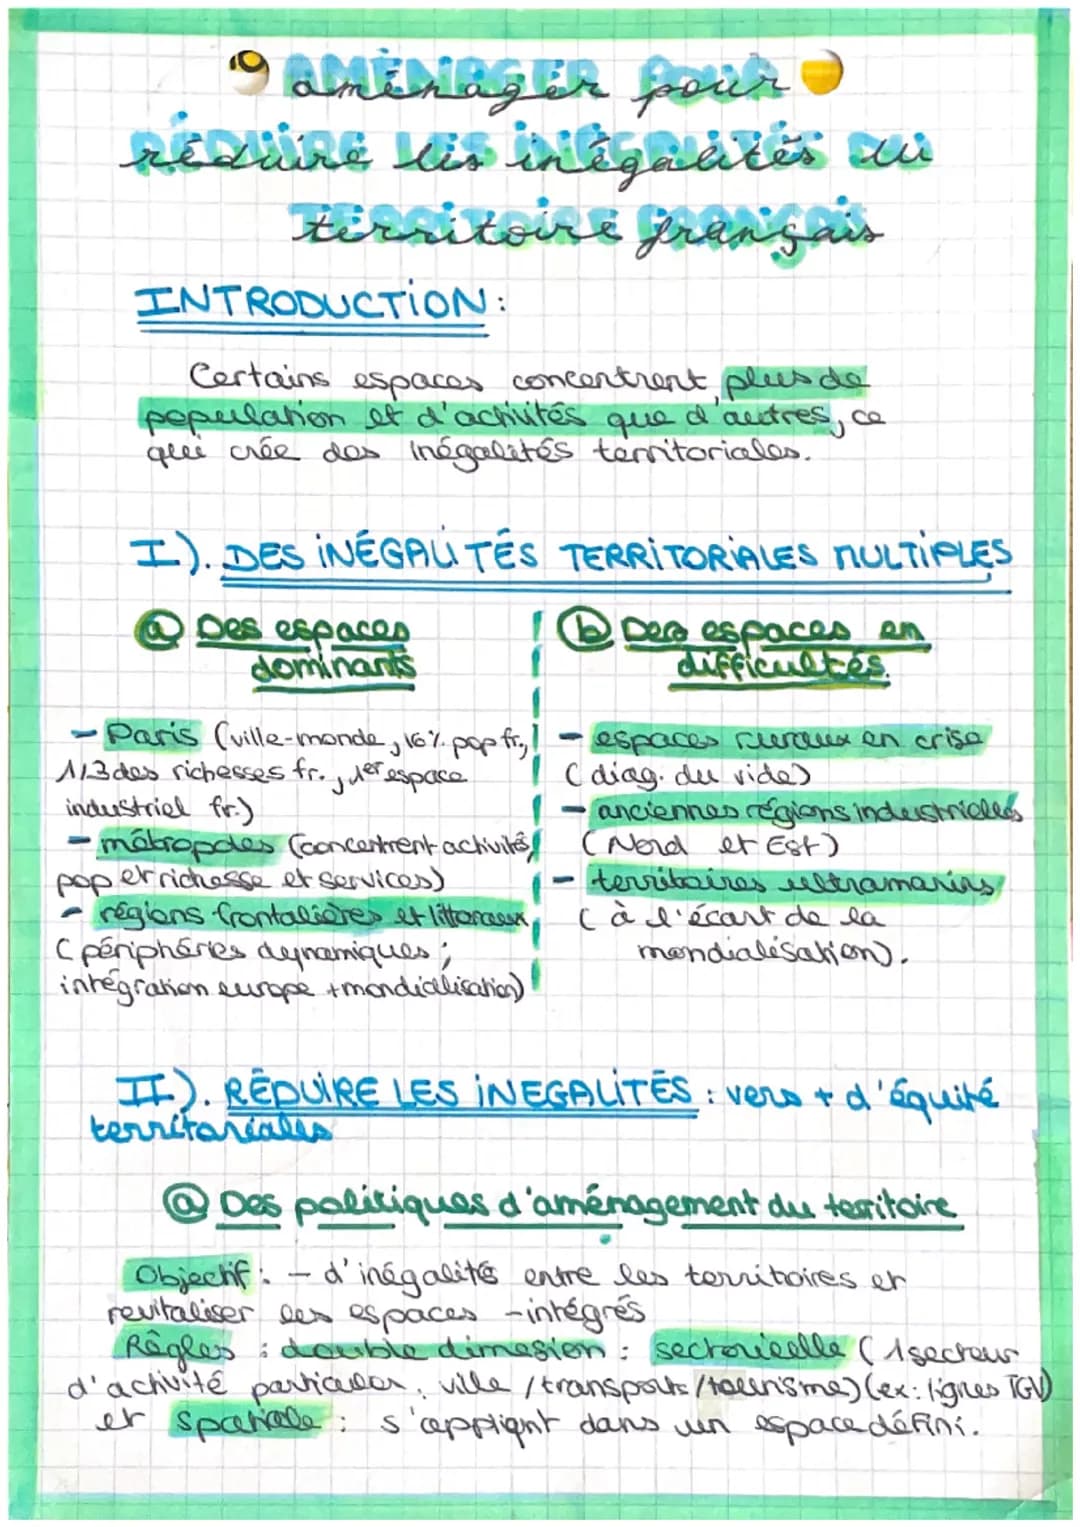 aménager pour
réduire les inégalités du
territoire français
INTRODUCTION:
Certains espaces concentrent plus de
population et d'activités que d'autres, ce
qui crée des inégalités territoriales.
I). DES INÉGALITÉS TERRITORIALES MULTIPLES
ⓐ Des espaces
dominants
- Paris (ville-monde, 16% pop fr,
1/3 des richesses fr., 1er espace
industriel fr.)
- métropoles (concentrent activités,
pop et richesse et services)
- régions frontalières et littoraux
(périphéries dynamiques ;
intégration europe + mondialisation)
ⓑ Des espaces en
difficultés.
- espaces ruraux en crise
(diag. du vide)
- anciennes régions industrielles
(Nord et Est)
- territoires ultramarins
(à l'écart de la
mondialisation).
II). RÉDUIRE LES INEGALITÉS : vers + d'équité
territoriales
ⓐ Des politiques d'aménagement du territoire
Objectif : - d'inégalités entre les territoires et
revitaliser les espaces - intégrés
Règles : double dimesion : sectorielle (1 secteur
d'activité particulier, ville / transports / tourisme) (ex: lignes TGV)
et spatiale : s'appliqnt dans un espace défini.